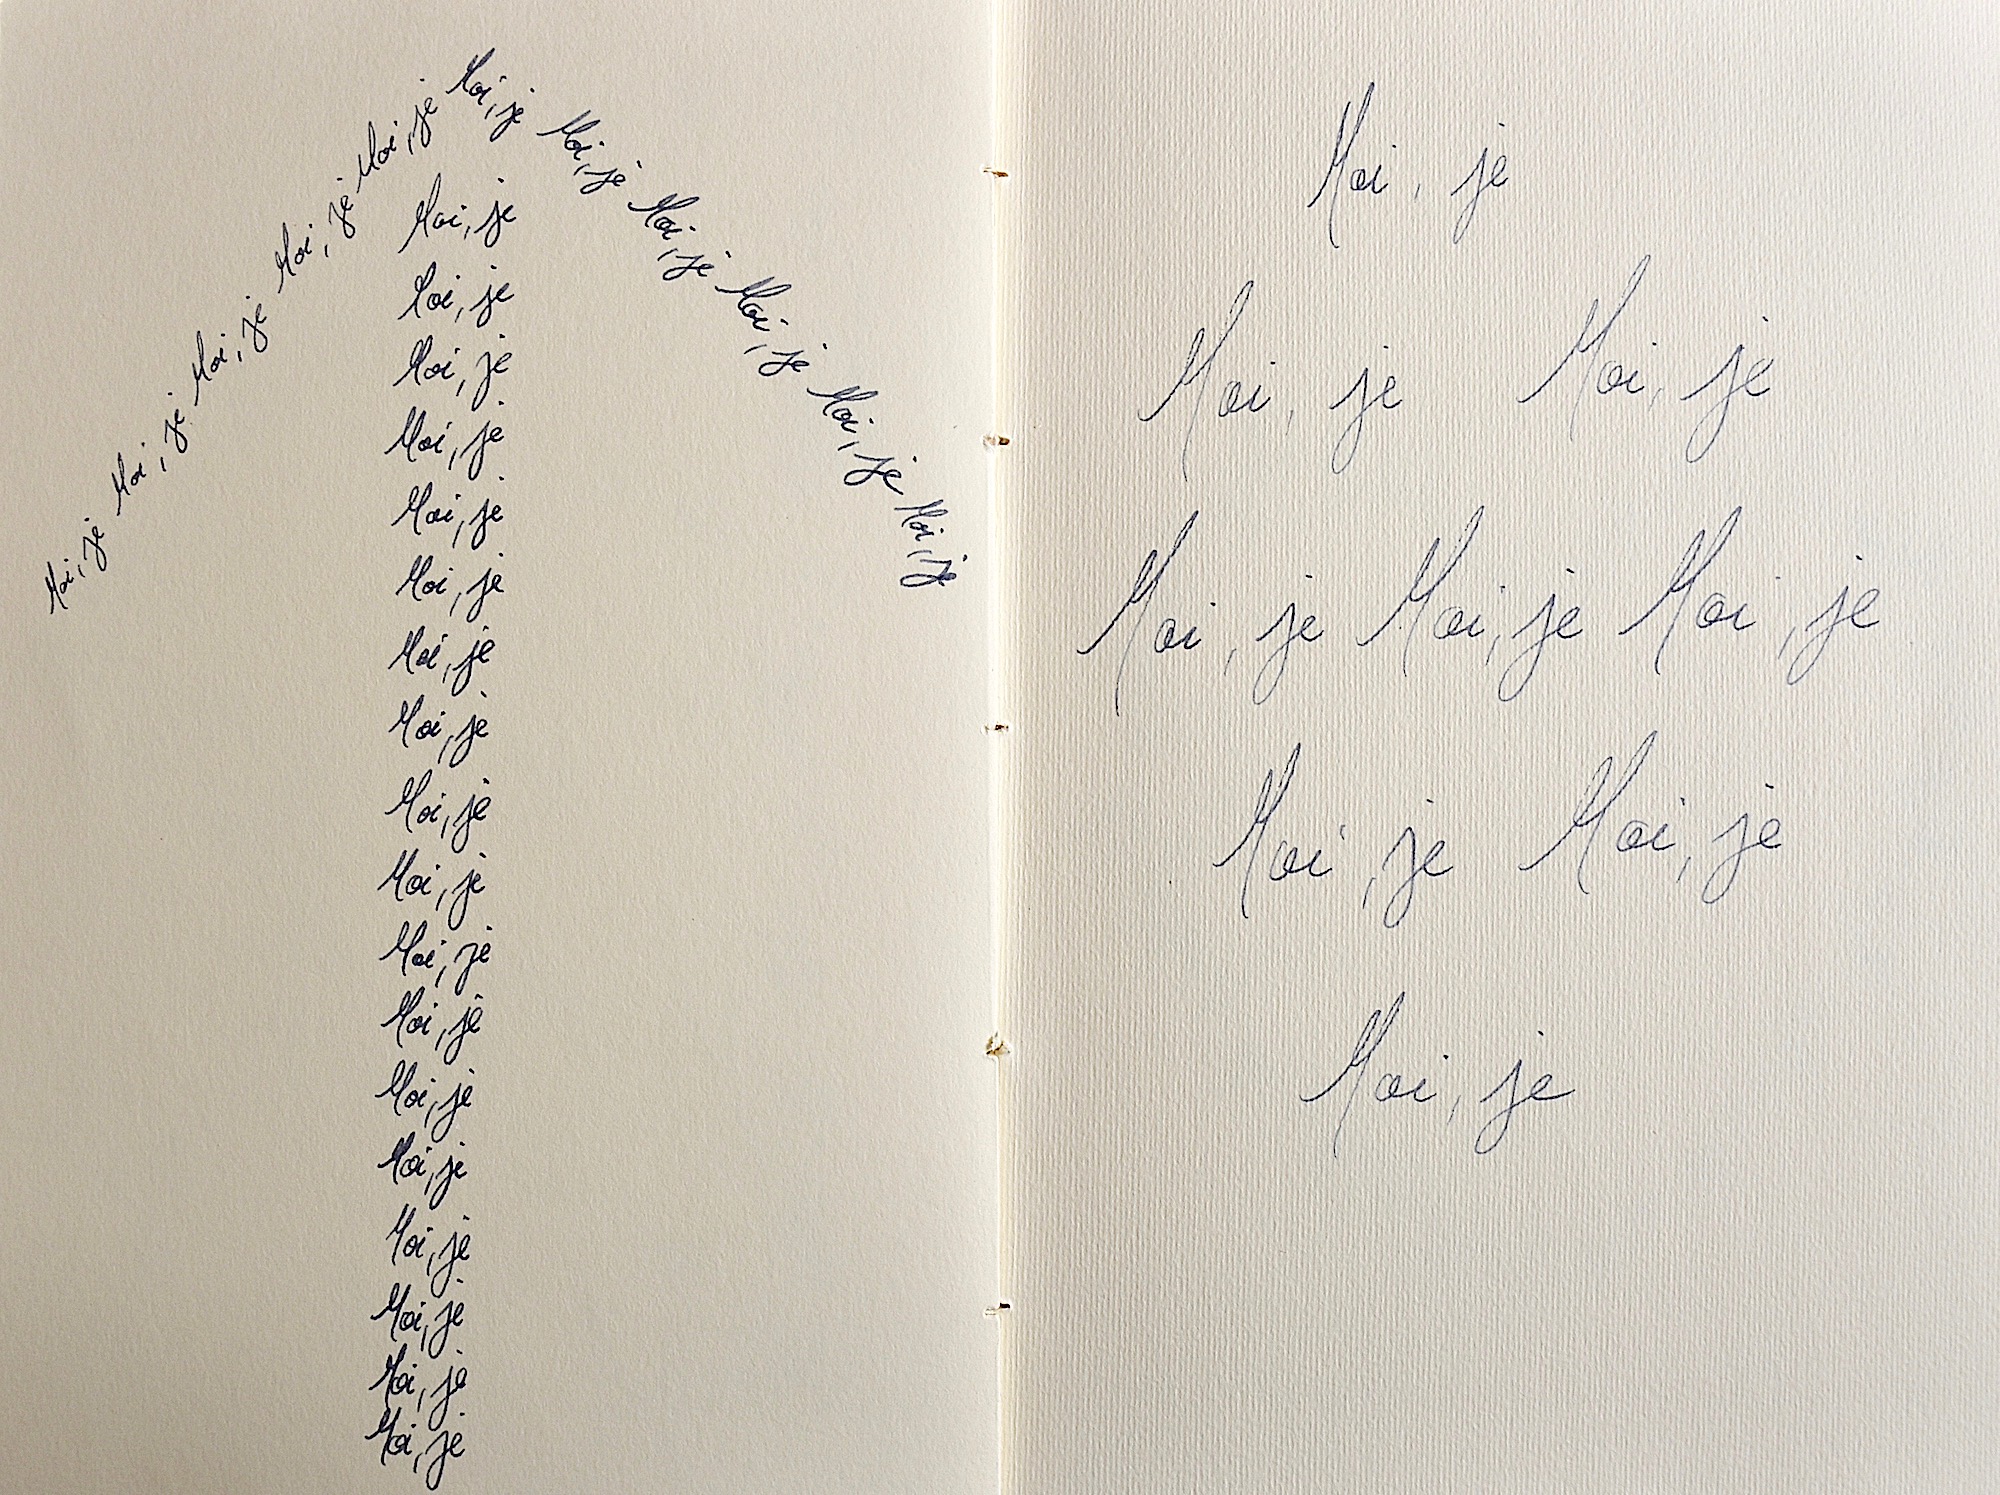 Moi, je Moi, je Moi, je Moi, je Moi, je
Moi, je Moi, je Moi, je Moi, je Moi, je Moi, je
Moi, je
Moi, je
Moi, je
Moi, je
Moi, je
Moi, je
Moi, je
Moi, je
Moi, je
Moi, je
Moi, je
Moi, je
Moi, je
Moi, je
Moi, je
Moi, je
Moi, je
Moi, je
Moi, je
Moi, je Moi, je
Moi, je Moi, je Moi, je
Moi, je Moi, je
Moi, je